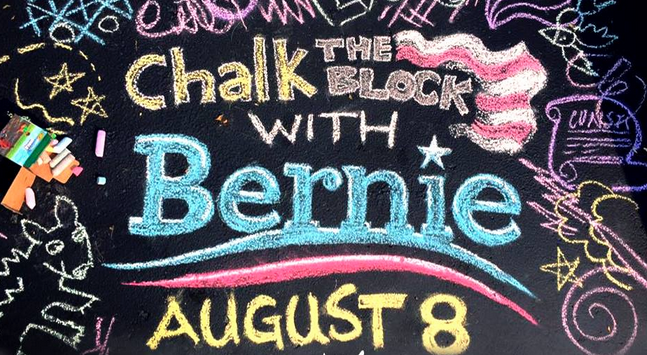 Chalk THE BLOCK
WITH
Bernie
AUGUST 8